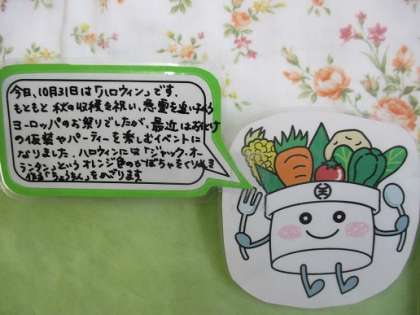 今日、10月31日は「ハロウィン」です。
もともと秋の収穫を祝い、悪霊を追いはらう
ヨーロッパのお祭りでしたが、最近はおばけ
の仮装やパーティーを楽しむイベントに
なりました。ハロウィンには「ジャック・オー
ランタン」というオレンジ色のかぼちゃをくりぬき
を
かざります